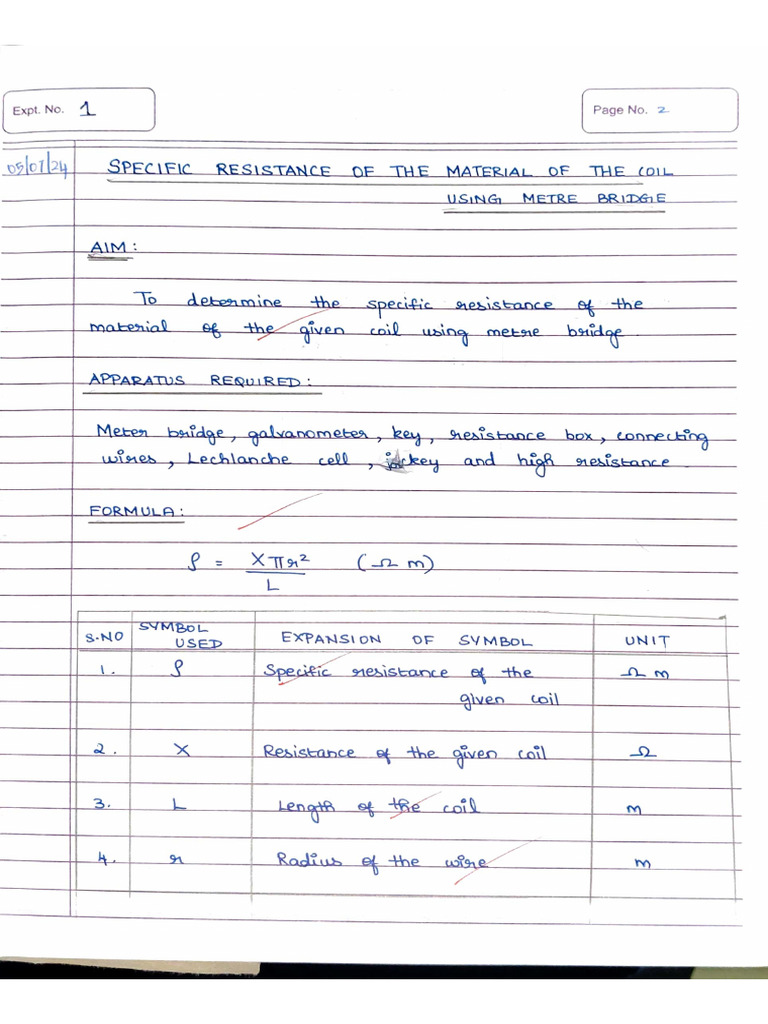 Expt. No. 1
Page No. 2
05/07/24
SPECIFIC RESISTANCE OF THE MATERIAL OF THE COIL
USING METRE BRIDGE
AIM:
To determine the specific resistance of the
material of the given coil using metre bridge
APPARATUS REQUIRED:
Meter bridge, galvanometer, key, resistance box, connecting
wires, Lechlanche cell, jockey and high resistance
FORMULA:
ρ = Xπr² / L (Ω m)
S.NO SYMBOL USED EXPANSION OF SYMBOL UNIT
1. ρ Specific resistance of the Ω m
given coil
2. X Resistance of the given coil Ω
3. L Length of the coil m
4. r Radius of the wire m